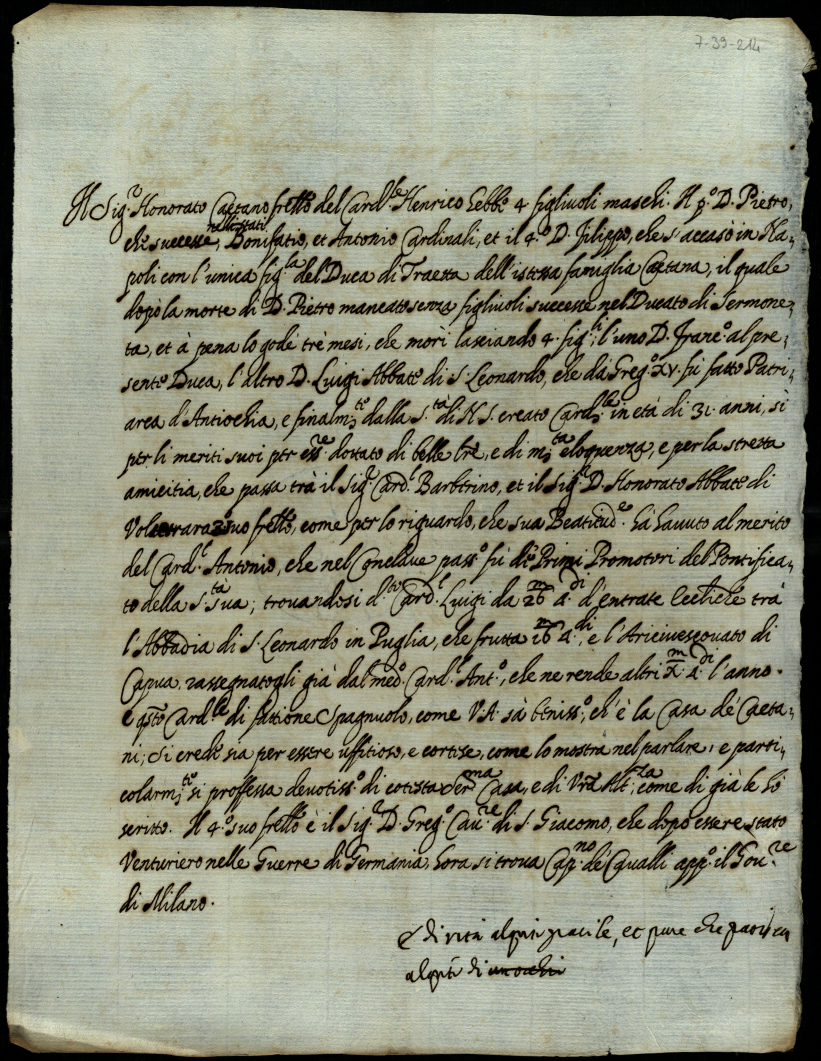 7-39-214
Il Sig.r Honorato Caetano fr̃llo del Card.le Henrico hebbe 4 figliuoli maschi. Il p.o D. Pietro,
nelli stati
che successe, Bonifatio, et Antonio Cardinali, et il 4.o D. Filippo, che s'accasò in Na-
poli con l'unica fig.la del Duca di Traetta dell'istessa famiglia Caetana, il quale
dopò la morte di D. Pietro mancato senza figliuoli successe nel Ducato di Sermone-
ta, et à pena lo godè trè mesi, che morì lasciando 4. fig.li; l'uno D. Franc.o al pre-
sente Duca, l'altro D. Luigi Abbate di S. Leonardo, che da Greg.o XV. fù fatto Patri-
arca d'Antiochia, e finalm.te dalla S.tà di N.S. creato Card.le in età di 31. anni, sì
per li meriti suoi per ess.re dottato di belle l̃re, e di m.ta eloquenza, e per la stretta
amicitia, che passa trà il Sig.r Card.l Barberino, et il Sig.r D. Honorato Abbate di
suo fr̃llo, come per lo riguardo, che sua Beatitud.e hà havuto al merito
del Card.l Antonio, che nel Conclave pass.o fù de Primi Promotori del Pontifica-
to della S.tà Sua; trovandosi d.to Card.l Luigi da d'entrate Ecc̃liche trà
l'Abbadia di S. Leonardo in Puglia, che frutta e l'Arcivescovato di
Capua, rassegnatogli già dal med.o Card.l Ant.o, che ne rende altri l'anno.
È q̃sto Card.le di fattione Spagnuolo, come V.A. sà beniss.o, ch'è la Casa de Caeta-
ni; Si crede sia per essere uffitioso, e cortese, come lo mostra nel parlare, e parti-
colarm.te si professa devotiss.o di cotesta Ser.ma Casa, e di Vr̃a Alt.za, come di già le hò
scritto. Il 4.o suo fr̃llo è il Sig.r D. Greg.o Cau.re di S. Giacomo, che dopo essere stato
Venturiero nelle Guerre di Germania, hora si trova Cap.no de Cavalli app.o il Gov.re
di Milano.
È di vita alquãto gracile, et pare che patisca
alquãto di